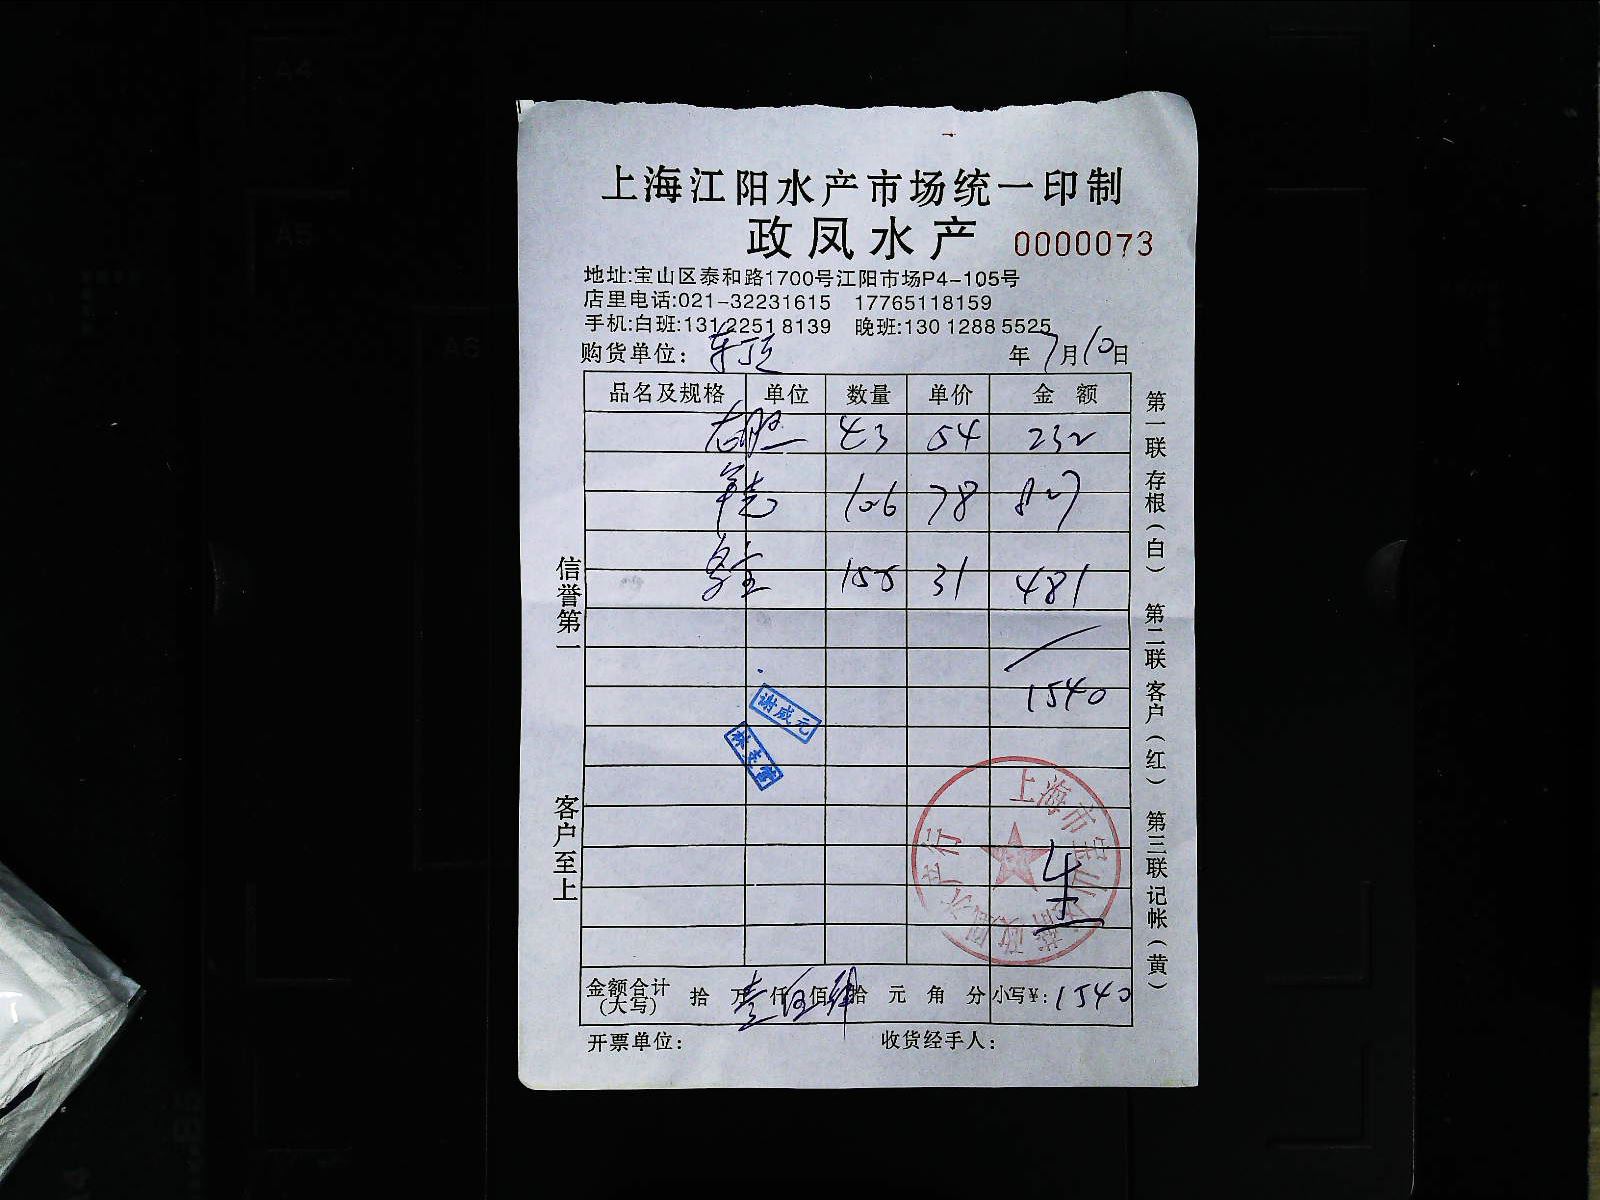 上海江阳水产市场统一印制
政凤水产 0000073
地址:宝山区泰和路1700号江阳市场P4-105号
店里电话:021-32231615 17765118159
手机:白班:131 2251 8139 晚班:130 1288 5525
购货单位: 年7月10日
品名及规格 单位 数量 单价 金额
43 54 232
106 78 827
155 31 481
1540
谢咸元
上海市宝山区 政凤水产行
金额合计(大写) 拾 万 仟 佰 拾 元 角 分 小写¥:1540
开票单位: 收货经手人:
信誉第一
客户至上
第一联存根(白) 第二联客户(红) 第三联记帐(黄)
A4
A5
A6